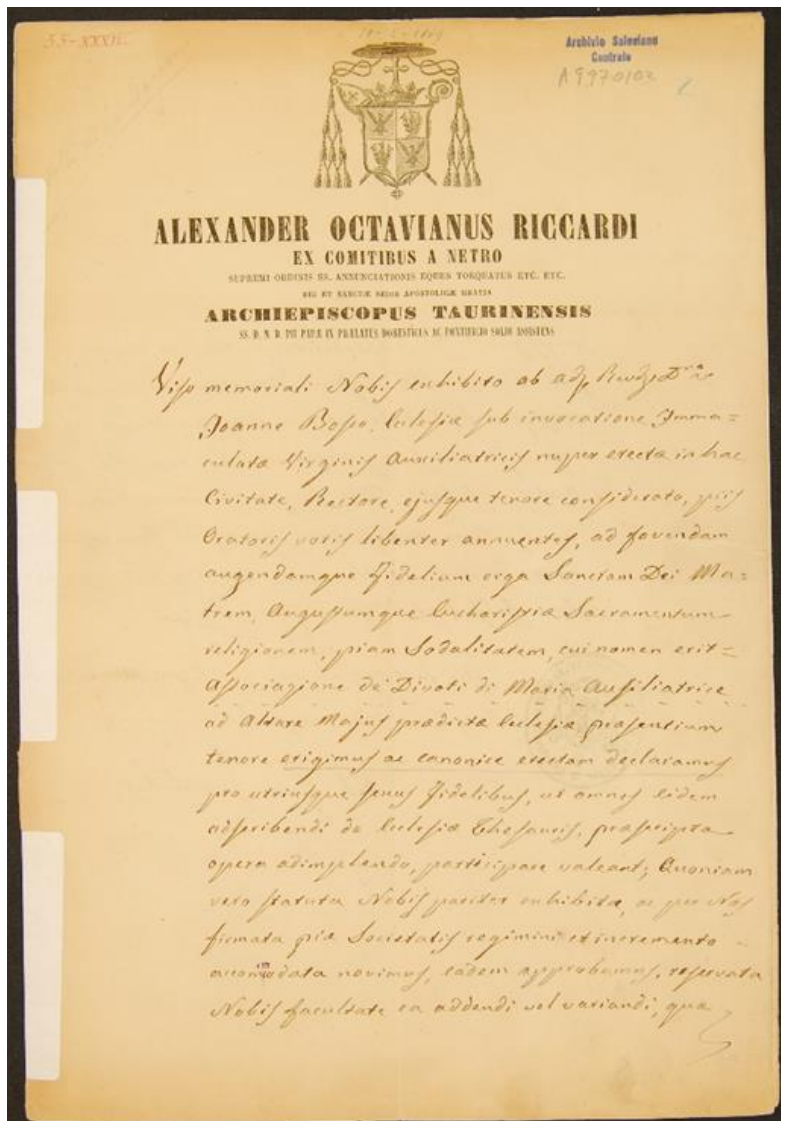 55-XXXII.
Archivio Salesiano
Centrale
A9970102
ALEXANDER OCTAVIANUS RICCARDI
EX COMITIBUS A NETRO
SUPREMI ORDINIS SS. ANNUNCIATIONIS EQUES TORQUATUS ETC. ETC.
DEI ET SANCTÆ SEDIS APOSTOLICÆ GRATIA
ARCHIEPISCOPUS TAURINENSIS
SS. D. N. D. PII PAPÆ IX PRÆLATUS DOMESTICUS AC PONTIFICIO SOLIO ASSISTENS
Viso memoriali Nobis exhibito ab
Joanne Bosco, Ecclesiæ sub invocatione Imma=
culatæ Virginis Auxiliatricis nuper erectæ in hac
Civitate, Rectore, ejusque tenore considerato, piis
Oratoris votis libenter annuentes, ad fovendam
augendamque Fidelium erga Sanctam Dei Ma=
trem, Augustumque Eucharistiæ Sacramentum
religionem, piam Sodalitatem, cui nomen erit=
Associazione de' Divoti di Maria Ausiliatrice
ad Altare Majus prædictæ Ecclesiæ præsentium
tenore erigimus ac canonice erectam declaramus
pro utriusque sexus Fidelibus, ut omnes eidem
adscribendi de Ecclesiæ Thesauris, præscripta
opera adimplendo, participare valeant; Quoniam
vero statuta Nobis pariter exhibita, ac per Nos
firmata piæ Societatis regimini et incremento
accomodata novimus, eadem approbamus, reservata
Nobis facultate ea addendi vel variandi, quæ